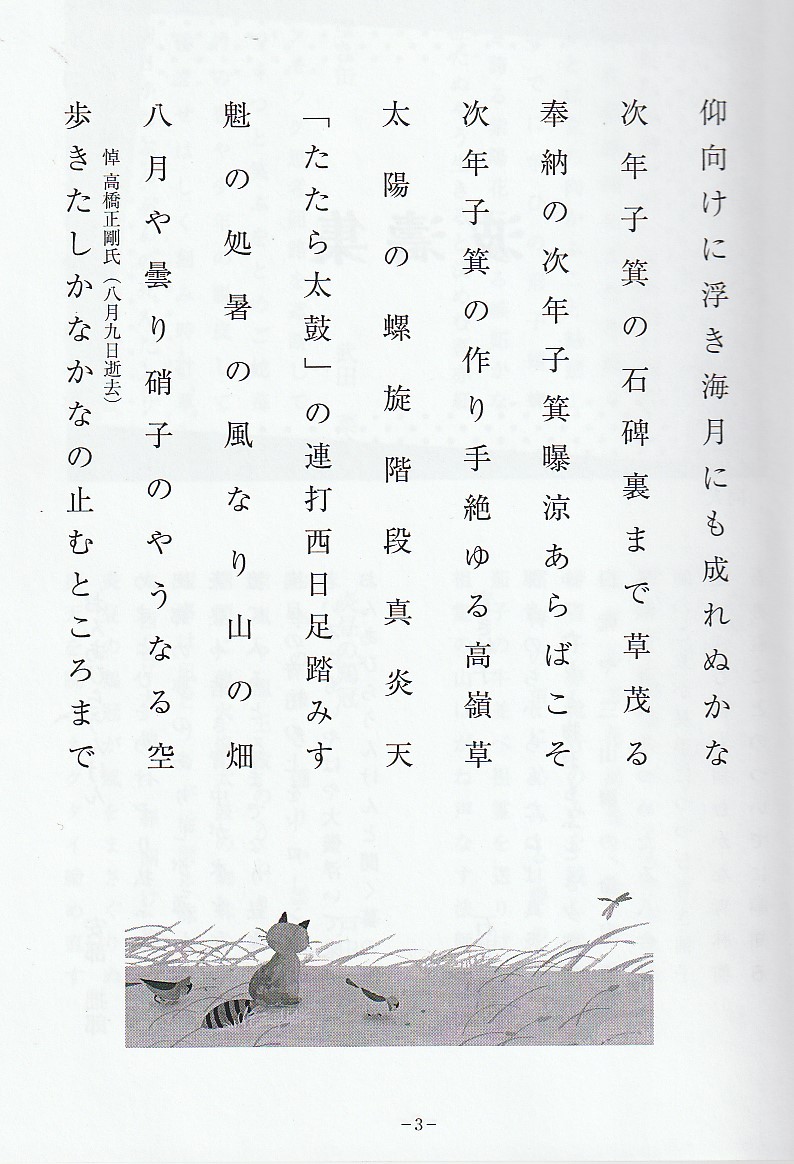 仰向けに浮き海月にも成れぬかな
次年子箕の石碑裏まで草茂る
奉納の次年子箕曝涼あらばこそ
次年子箕の作り手絶ゆる高嶺草
太陽の螺旋階段真炎天
「たたら太鼓」の連打西日足踏みす
魁の処暑の風なり山の畑
八月や曇り硝子のやうなる空
悼 高橋正剛氏（八月九日逝去）
歩きたしかなかなの止むところまで
−3−